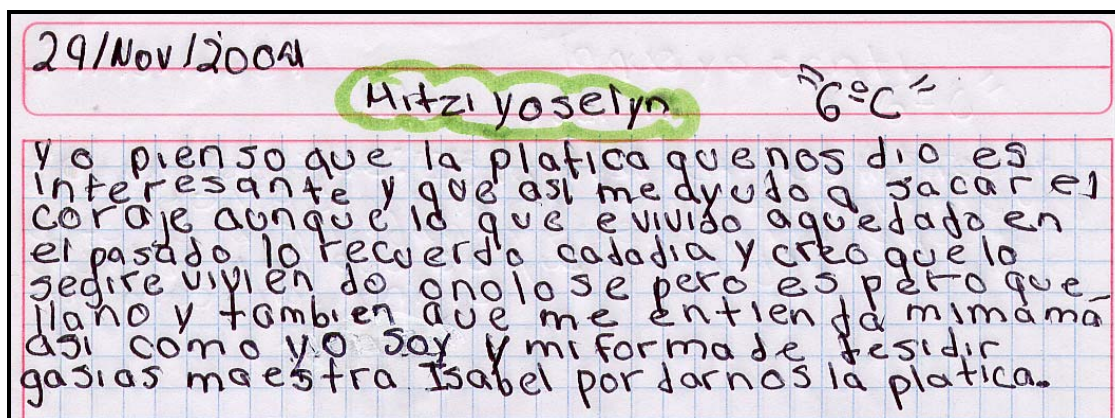 29/Nov/2004
Mitzi yoselyn "6ºC"
Yo pienso que la platica que nos dio es
interesante y que asi me ayudo a sacar el
coraje aunque lo que e vivido a quedado en
el pasado lo recuerdo cada dia y creo que lo
segire viviendo o no lo se pero espero que
llano y tambien que me entienda mi mamá
asi como yo soy y mi forma de desidir
gasias maestra Isabel por darnos la platica.